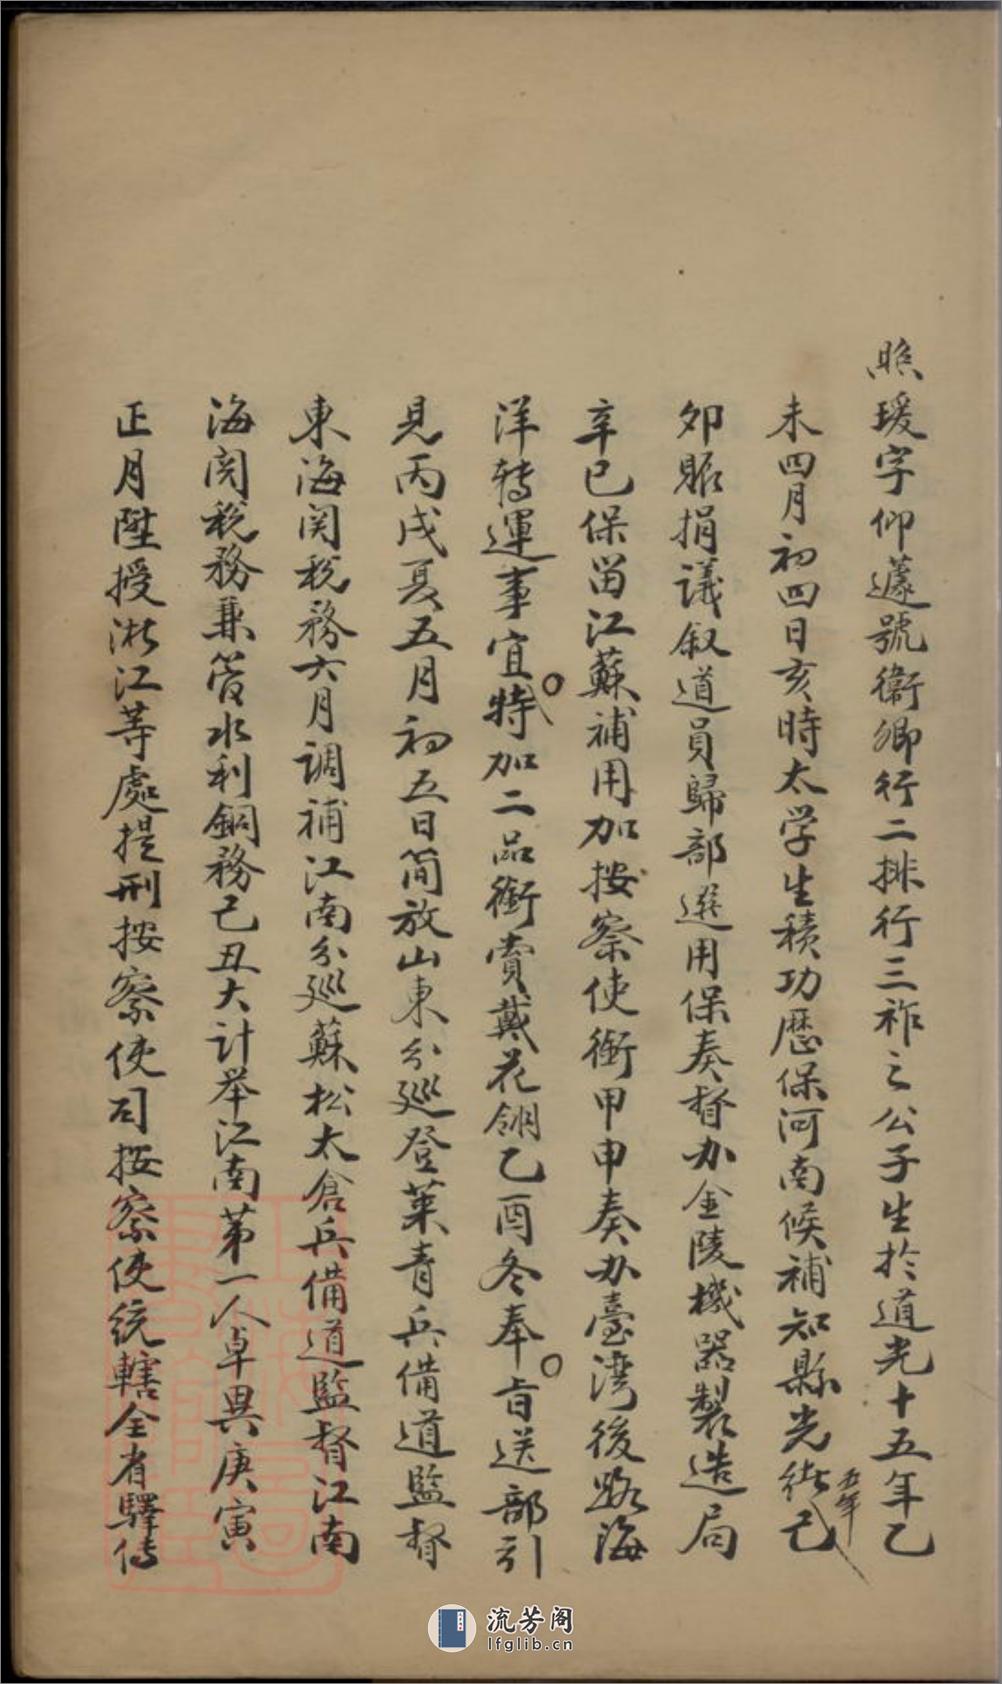 照瑗字仰蘧號衛卿行二排行三祚之公子生於道光十五年乙
未四月初四日亥時太学生積功歷保河南候補知縣光緒五年己
卯賑捐議叙道員歸部選用保奏督办金陵機器製造局
辛巳保留江蘇補用加按察使銜甲申奏办臺灣後路海
洋转運事宜特加二品銜賞戴花翎乙酉冬奉旨送部引
見丙戌夏五月初五日简放山東分巡登莱青兵備道監督
東海関税務六月调補江南分巡蘇松太倉兵備道監督江南
海関税務兼管水利銅務己丑大计举江南第一人卓異庚寅
正月陞授浙江等處提刑按察使司按察使统轄全省驛传
流芳阁
lfglib.cn